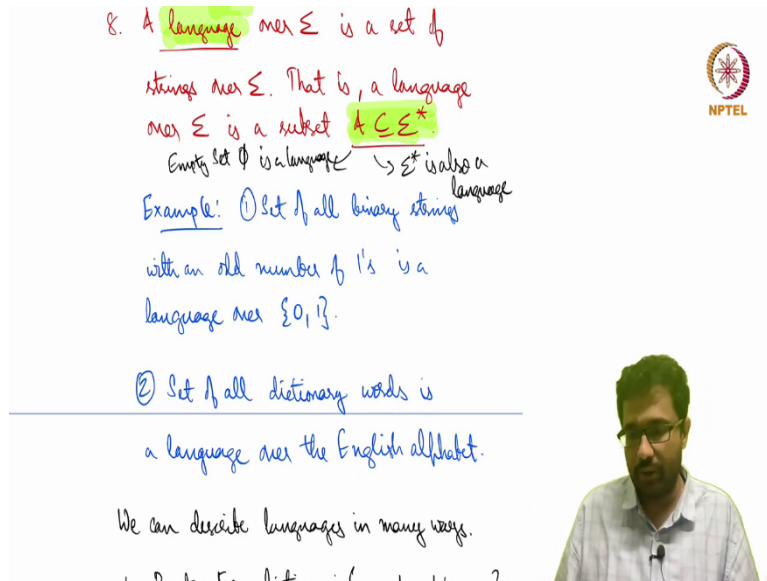 8. A language over Σ is a set of
strings over Σ. That is, a language
over Σ is a subset A ⊆ Σ*.
Empty Set ϕ is a language
Σ* is also a
language
Example: ① Set of all binary strings
with an odd number of 1's is a
language over {0,1}.
② Set of all dictionary words is
a language over the English alphabet.
We can describe languages in many ways.
NPTEL